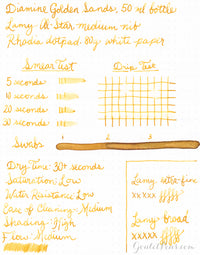 Diamine Golden Sands, 50 ml bottle
Lamy Al-Star medium nib
Rhodia dotpad 80g white paper
Smear Test
Drip Test
5 seconds
10 seconds
20 seconds
30 seconds
Swabs
1
2
3
Dry Time: 30+ seconds
Saturation: Low
Water Resistance: Low
Ease of Cleaning: Medium
Shading: High
Flow: Medium
Lamy extra-fine
xx xxx
Lamy broad
xxxxx
GouletPens.com